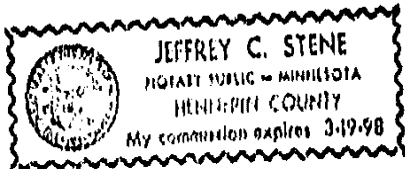 JEFFREY C. STENE
NOTARY PUBLIC - MINNESOTA
HENNEPIN COUNTY
My commission expires 3-19-98